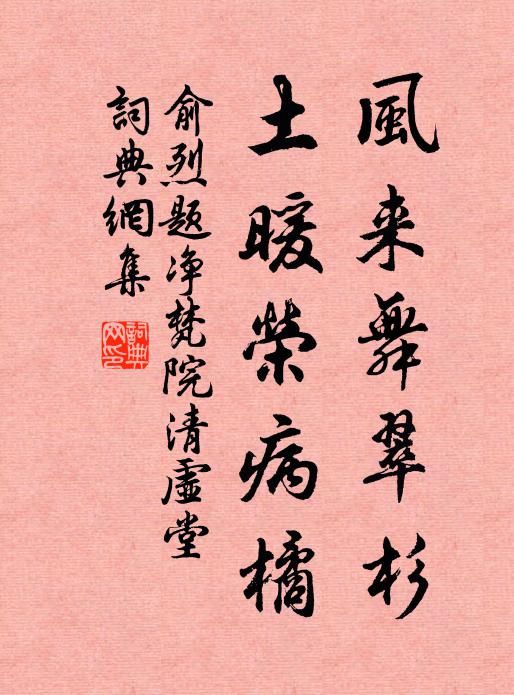 風来舞翠杉
土暖榮病橘
俞烈题净梵院清虛堂
詞典網集
詞典网印